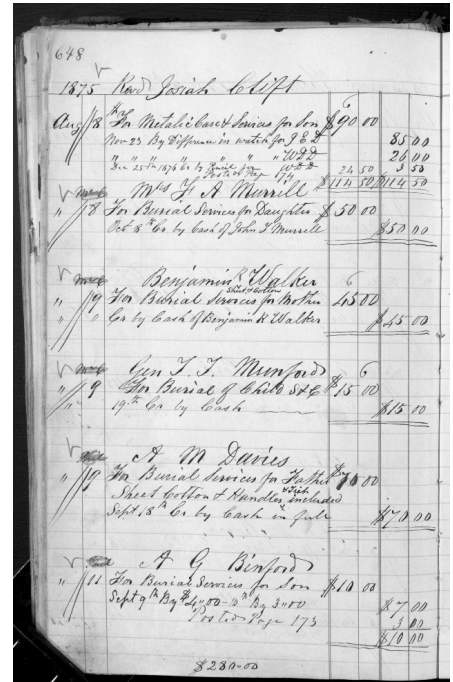 648
1875 Revd Josiah Clift
Aug 8 To Metalic Case & Services for Son $90 00
Nov 23 By Difference in watch for J E D 85 00
" " " " " " W D D 26 00
Dec 25th 1876 Cr by for W D D 3 50
Posted Page 174 24 50
$114 50 $114 50
Mrs F A Murrell
" 8 For Burial Services for Daughter $50 00
Oct 8th Cr by Cash of John F Murrell $50 00
Benjamin R Walker
Sheet & Cotton
" 9 For Burial Services for Mother 45 00
" " Cr by Cash of Benjamin R Walker $45 00
Gen T. T. Munford
" 9 For Burial of Child S & C $15 00
" 19th Cr by Cash $15 00
A M Davies
" 9 For Burial Services for Father $70 00
Sheet Cotton & Handles included
Sept 18th Cr by Cash in full $70 00
A G Binford
" 11 For Burial Services for Son $10 00
Sept 9th By $4.00 - 10th By 3.00 $7 00
Posted Page 173 3 00
$10 00
$280.00